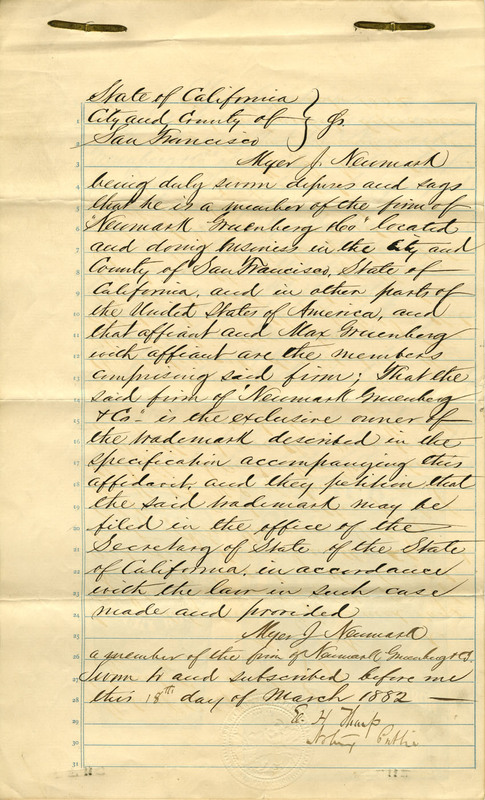 State of California
City and County of } ss.
San Francisco
Myer J. Neumark
being duly sworn deposes and says
that he is a member of the firm of
"Neumark Gruenberg & Co" located
and doing business in the City and
County of San Francisco, State of
California, and in other parts of
the United States of America, and
that affiant and Max Gruenberg
with affiant are the members
comprising said firm; That the
said firm of "Neumark Gruenberg
& Co" is the exclusive owner of
the trademark described in the
specification accompanying this
affidavit, and they petition that
the said trademark may be
filed in the office of the
Secretary of State of the State
of California, in accordance
with the law in such case
made and provided
Myer J Neumark
a member of the firm of Neumark Gruenberg & Co.
Sworn to and subscribed before me
this 18th day of March 1882
E. H. Tharp
Notary Public